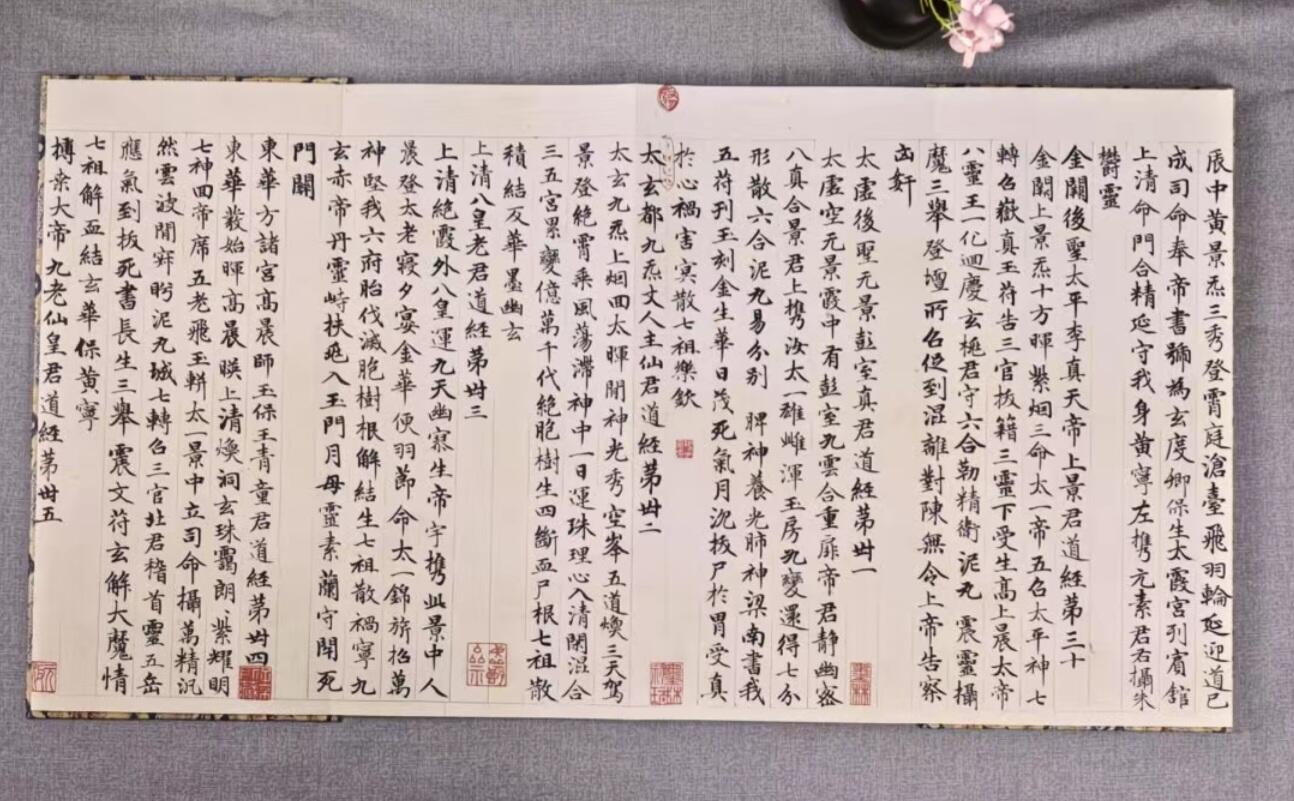 辰中黄景炁三秀登霄庭滄臺飛羽輪延迎道已
成司命奉帝書號為玄度卿保生太霞宮列賓館
上清命門合精延守我身黄寧左携元素君右攝朱
欎靈
金闕後聖太平李真天帝上景君道經第三十
金闕上景炁十方暉紫烟三命太一帝五召太平神七
轉召嶽真玉符告三官拔籍三靈下受生高上晨太帝
八靈王一化迴慶玄極君守六合勒精衛泥丸震靈攝
魔三舉登壇所召促到混離對陳無令上帝告察
凶奸
太虛後聖元景彭室真君道經第丗一
太虛空元景霞中有彭室九雲合重扉帝君静幽密
八真合景君上携汝太一雄雌渾玉房九變還得七分
形散六合泥九易分别脾神養光肺神梁南書我
五符刋玉刻金生華日茂死氣月沉拔尸於胃受真
於心禍害冥散七祖樂欽
太玄都九炁丈人主仙君道經第丗二
太玄九炁上烟四太暉開神光秀空峯五道煥三天駕
景登絶霄乘風蕩滯神中一日運珠理心入清閑混合
三五宮累變億萬千代絶胞樹生四斷血尸根七祖散
積結反華墨幽玄
上清八皇老君道經第丗三
上清絶霞外八皇運九天幽寥生帝宇携此景中人
晨登太老寢夕宴金華便羽節命太一錦旂招萬
神堅我六府胎伐滅胞樹根解結生七祖散禍寧九
玄赤帝丹靈峙扶兆入玉門月母靈素蘭守閉死
門關
東華方諸宮高晨師玉保王青童君道經第丗四
東華發始暉高晨暎上清煥洞玄珠靄朗〻紫耀明
七神四帝席五老飛玉軿太一景中立司命攝萬精汎
然雲波開穽眄泥丸城七轉召三官北君稽首靈五岳
應氣到拔死書長生三舉震文符玄解大魔情
七祖解血結玄華保黄寧
搏桒大帝九老仙皇君道經第丗五